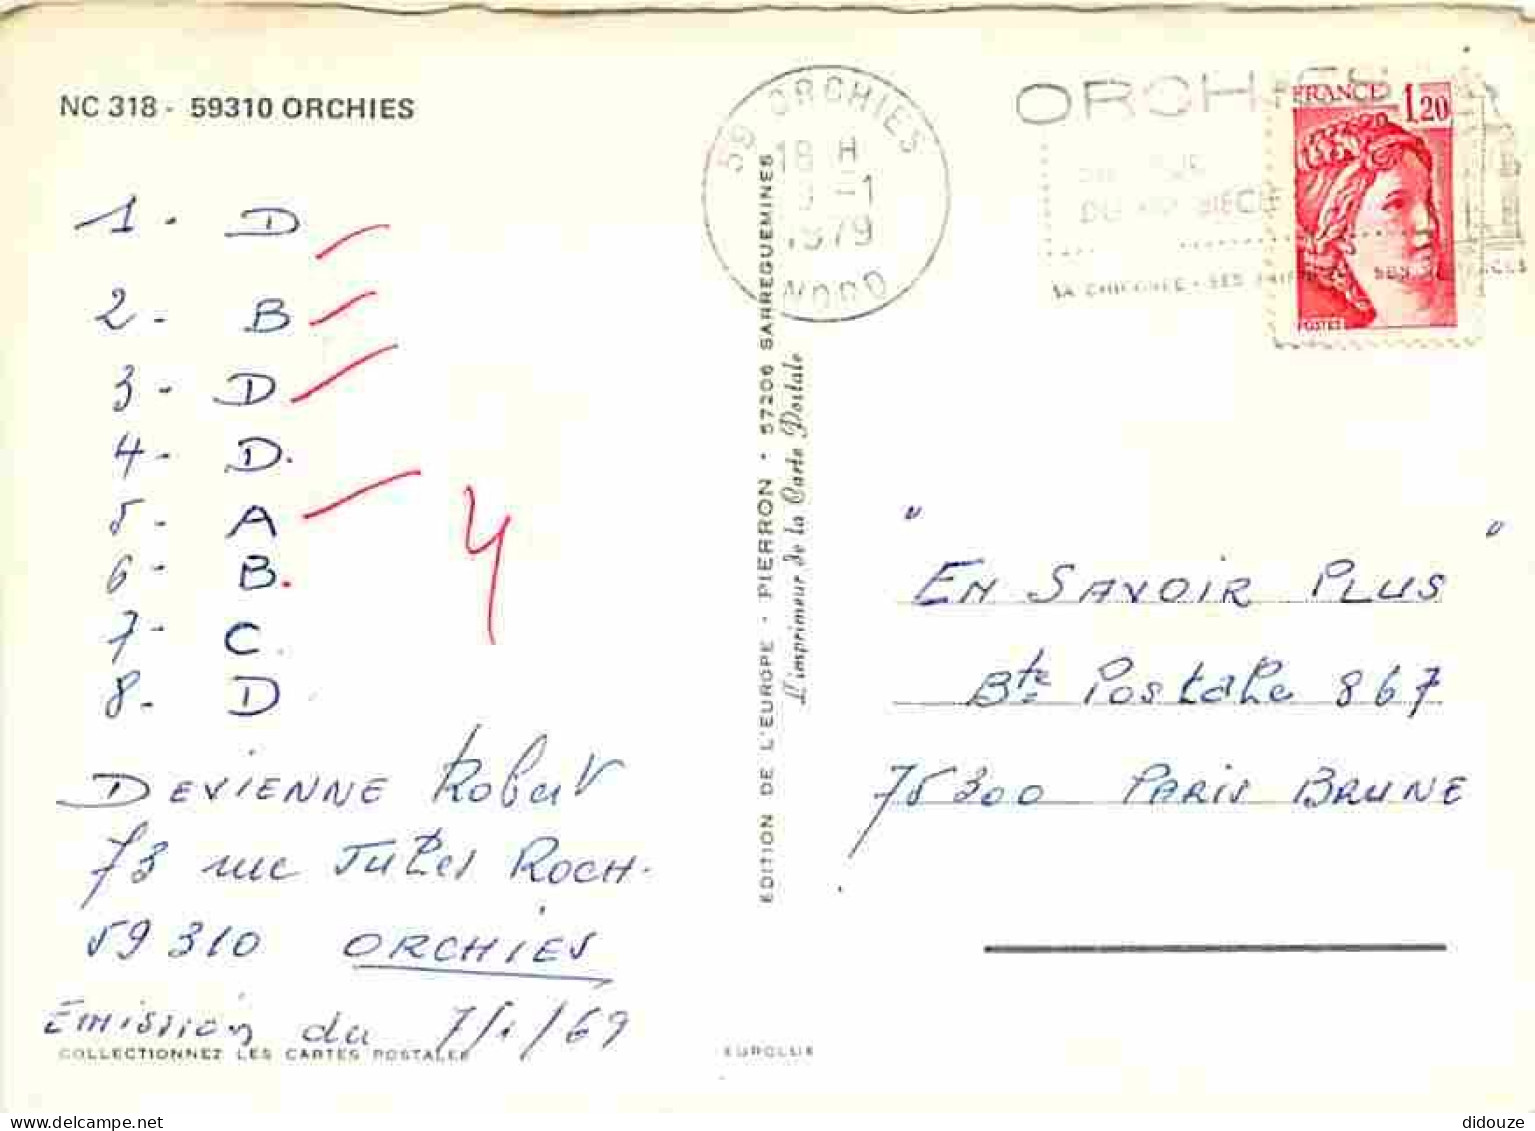 NC 318 - 59310 ORCHIES
1 - D
2 - B
3 - D
4 - D.
5 - A
6 - B.
7 - C.
8 - D
4
DEVIENNE Robert
73 rue Jules ROCH.
59310 ORCHIES
Emission du 7/1/69
COLLECTIONNEZ LES CARTES POSTALES
EDITION DE L'EUROPE - PIERRON - 57206 SARREGUEMINES
L'imprimeur de la Carte Postale
EUROLUX
59 ORCHIES
18 H
9 -1
1979
NORD
ORCHIES
DU SIECLE
SA CHICOREE - SES
FRANCE 1,20
POSTES
"EN SAVOIR PLUS"
Bte Postale 867
75300 PARIS BRUNE
delcampe.net
didouze